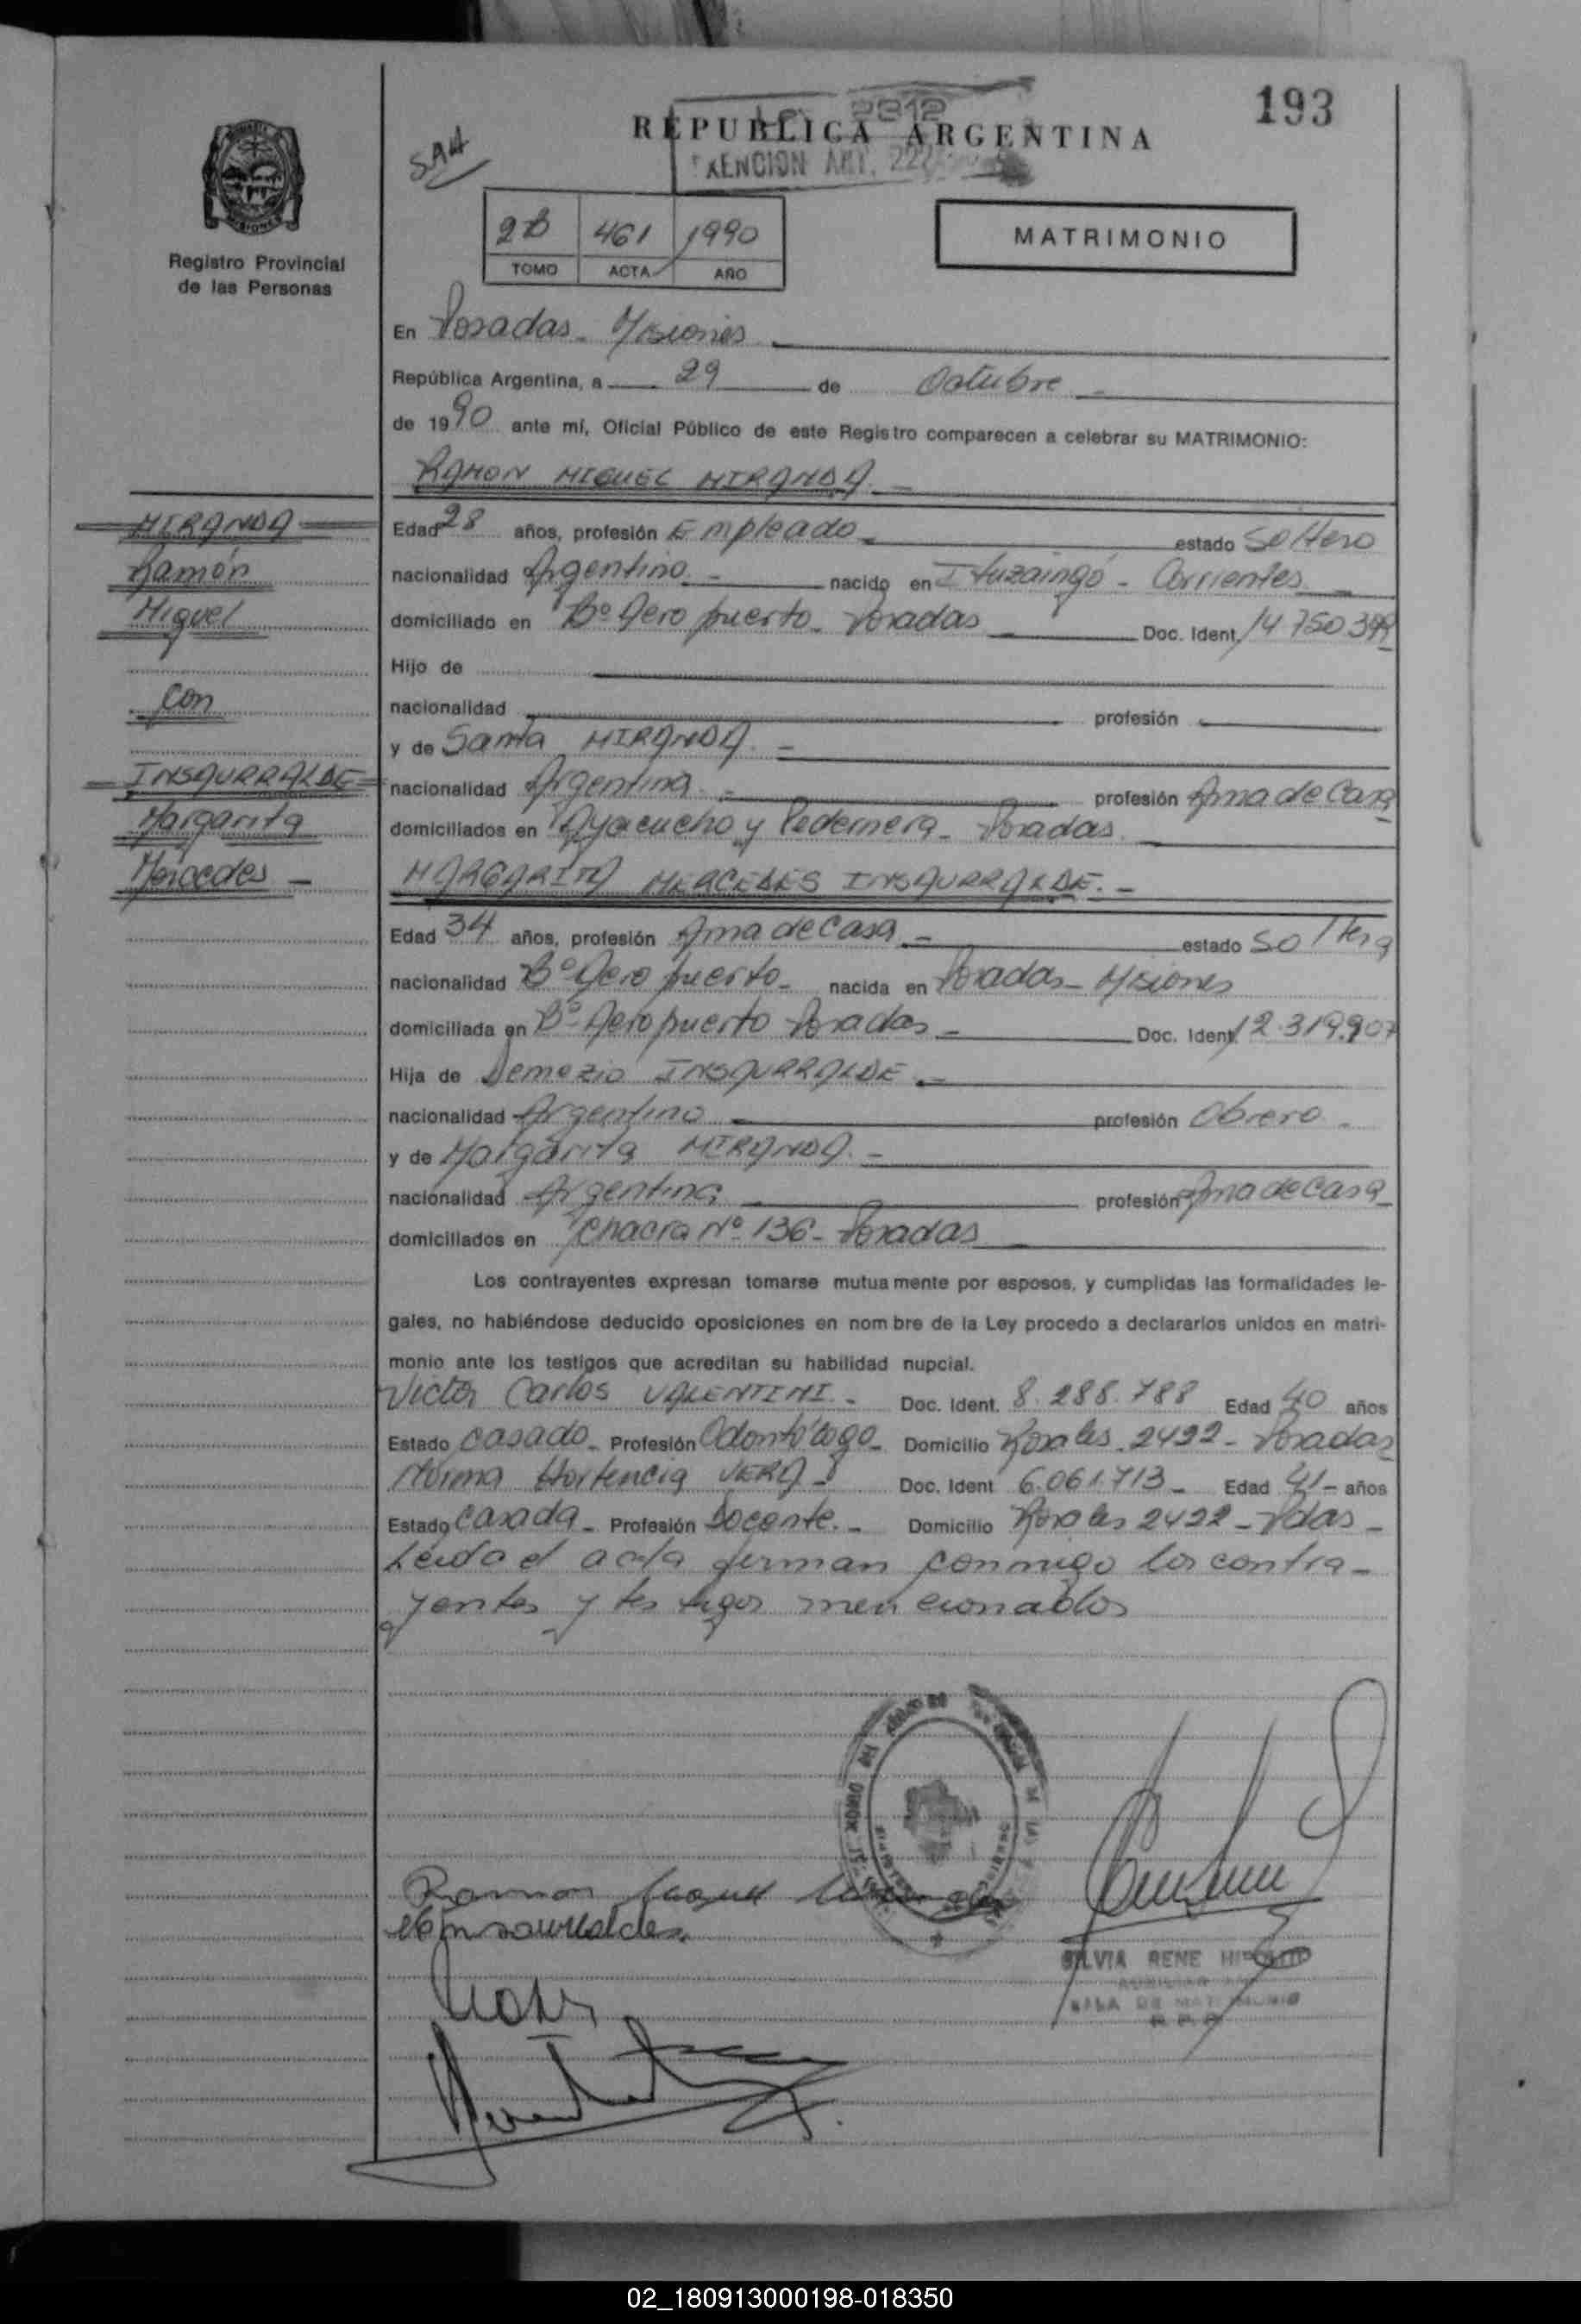 193
REPUBLICA ARGENTINA
2312
EXENCION ART. 222
SAH
Registro Provincial
de las Personas
2B 461 1990
TOMO ACTA AÑO
MATRIMONIO
En Posadas - Misiones
República Argentina, a 29 de Octubre
de 1990 ante mí, Oficial Público de este Registro comparecen a celebrar su MATRIMONIO:
RAMON MIGUEL MIRANDA.-
MIRANDA
Ramón
Miguel
con
INSAURRALDE
Margarita
Mercedes -
Edad 28 años, profesión Empleado - estado soltero
nacionalidad Argentino.- nacido en Ituzaingó - Corrientes
domiciliado en Bº Aero puerto - Posadas Doc. Ident. 14 750
Hijo de
nacionalidad profesión
y de Santa MIRANDA.-
nacionalidad Argentina.- profesión Ama de Casa
domiciliados en Ayacucho y Pedernera - Posadas
MARGARITA MERCEDES INSAURRALDE.-
Edad 34 años, profesión Ama de Casa - estado soltera
nacionalidad Bº Aero puerto - nacida en Posadas - Misiones
domiciliada en Bº Aeropuerto Posadas - Doc. Ident. 12.319.907
Hija de Demezio INSAURRALDE.-
nacionalidad Argentino profesión Obrero.
y de Margarita MIRANDA.-
nacionalidad Argentina profesión Ama de Casa
domiciliados en Chacra Nº 136 - Posadas
Los contrayentes expresan tomarse mutuamente por esposos, y cumplidas las formalidades le-
gales, no habiéndose deducido oposiciones en nombre de la Ley procedo a declararlos unidos en matri-
monio ante los testigos que acreditan su habilidad nupcial.
Victor Carlos VALENTINI.- Doc. Ident. 8.288.788 Edad 40 años
Estado casado - Profesión Odontólogo - Domicilio Rosales 2422 - Posadas
Norma Hortencia VERA - Doc. Ident 6.061.713 - Edad 41 - años
Estado casada - Profesión Docente.- Domicilio Rosales 2422 - Pdas -
Leída el acta firman conmigo los contra-
yentes y testigos mencionados
Ramon Miguel Miranda
SILVIA RENE HIPOLITO
SALA DE MATRIMONIO
R.P.P.
02_180913000198-018350